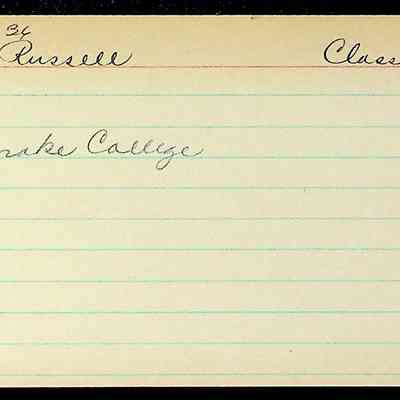 34
Russell Class
rake College